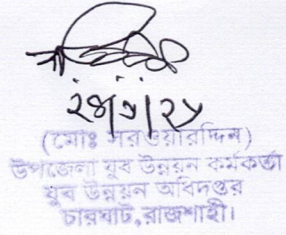 ২৪|৯|২৮
(মোঃ সরওয়ারদ্দিন)
উপজেলা যুব উন্নয়ন কর্মকর্তা
যুব উন্নয়ন অধিদপ্তর
চারঘাট,রাজশাহী।